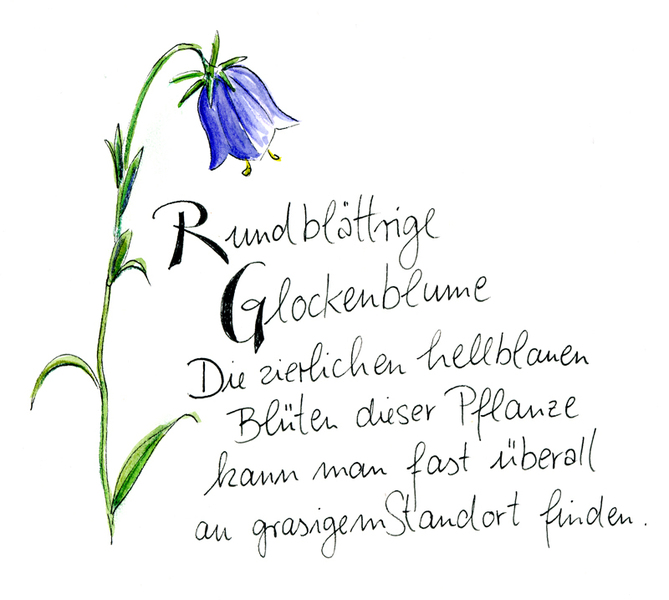 Rundblättrige
Glockenblume
Die zierlichen hellblauen
Blüten dieser Pflanze
kann man fast überall
an grasigem Standort finden.